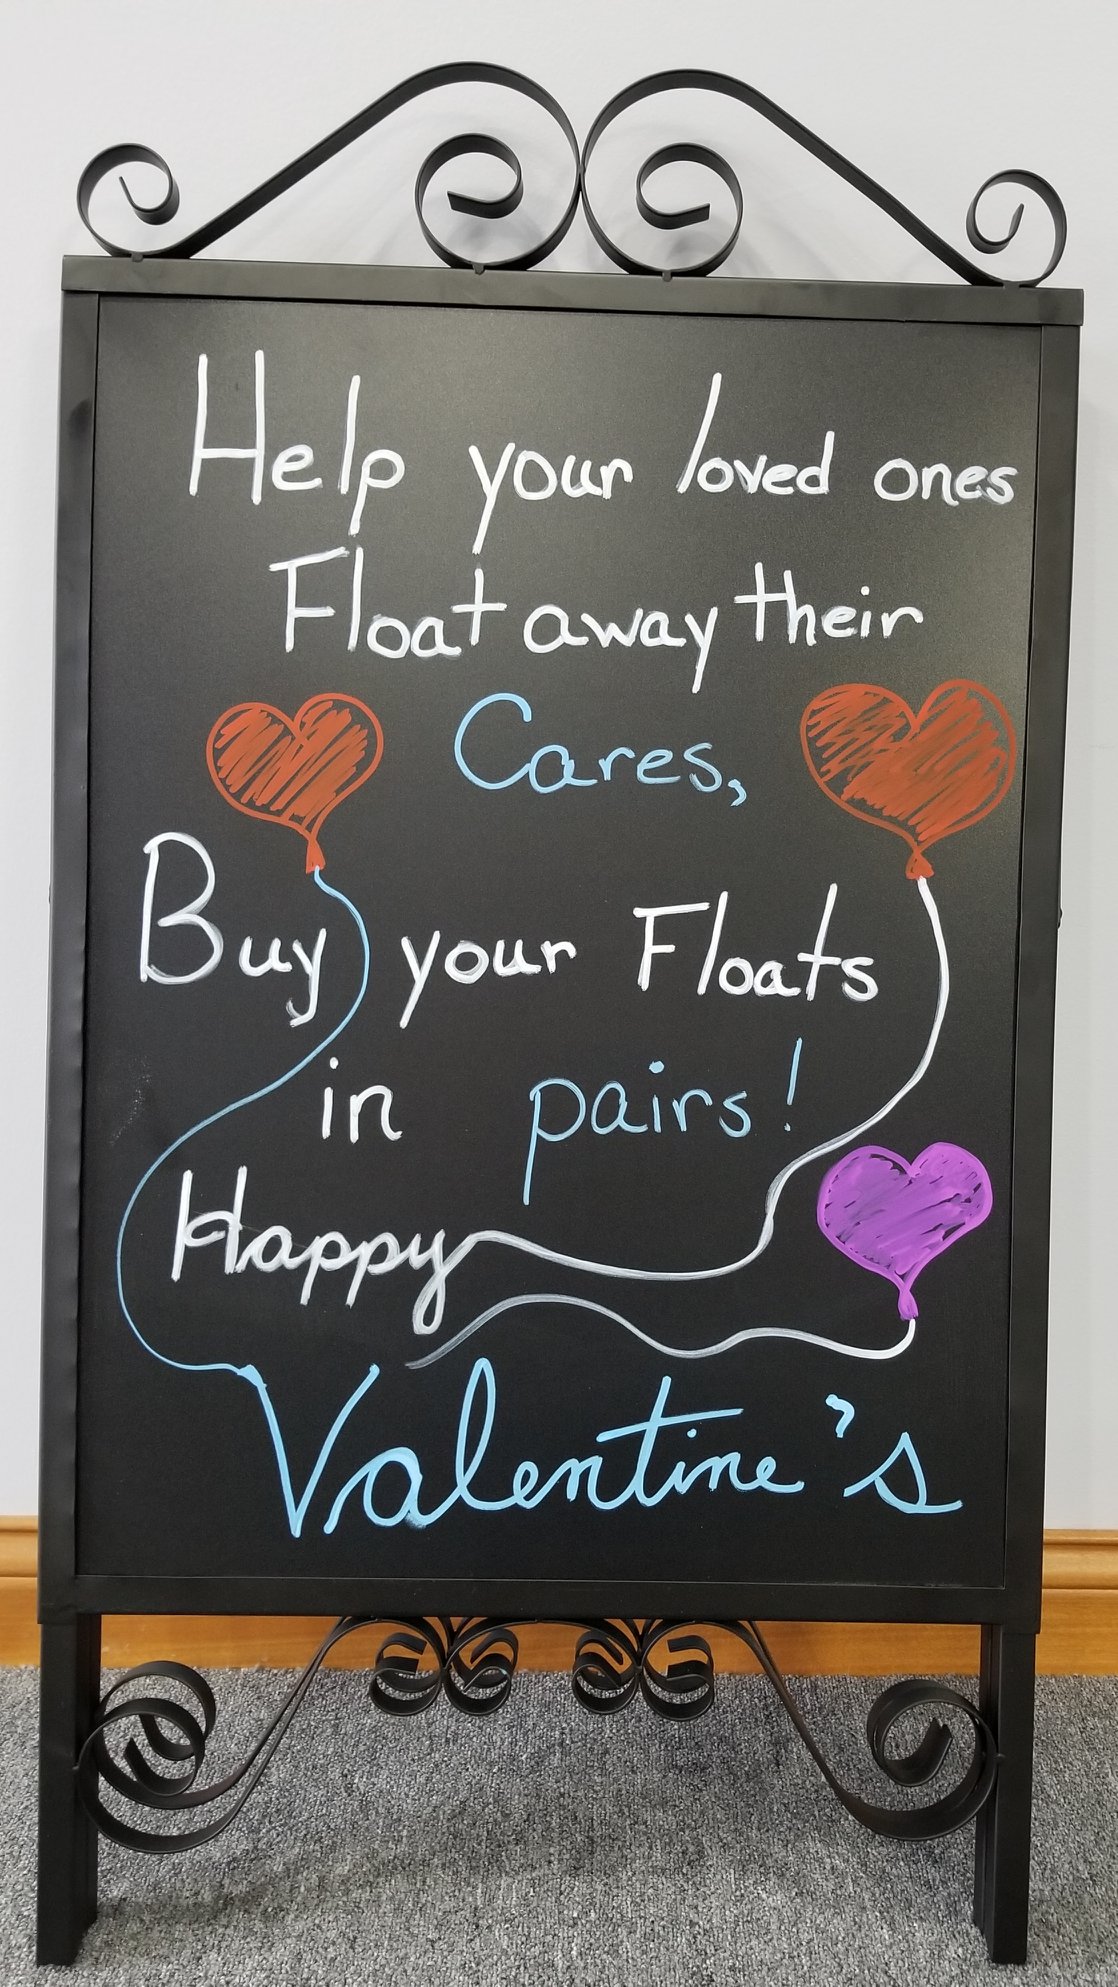 Help your loved ones
Float away their
Cares,
Buy your Floats
in pairs!
Happy
Valentine's